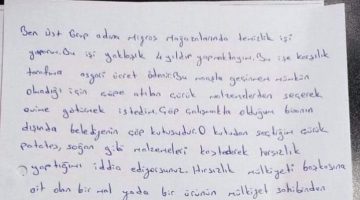 Ben Üst Grup adına Migros Mağazalarında temizlik işi
yapıyorum. Bu işi yaklaşık 4 yıldır yapmaktayım. Bu işe karşılık
tarafıma asgari ücret ödenir. Bu maaşla geçinmem mümkün
olmadığı için çöpe atılan çürük malzemelerden seçerek
evime götürmek istedim. Çöp çalışmakta olduğum binanın
dışında belediyenin çöp kutusudur. O kutudan seçtiğim çürük
patates, soğan gibi malzemeleri kastederek hırsızlık
yaptığımı iddia ediyorsunuz. Hırsızlık mülkiyeti başkasına
ait olan bir mal yada bir ürünün mülkiyet sahibinden